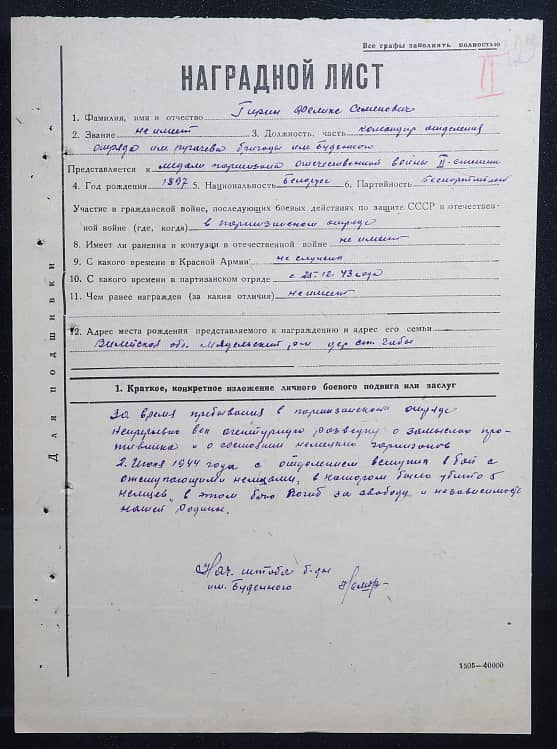 Все графы заполнять полностью
НАГРАДНОЙ ЛИСТ
1. Фамилия, имя и отчество Гирин Феликс Семенович
2. Звание не имеет 3. Должность, часть командир отделения
отряда им. Пугачева бригады им. Буденного
Представляется к медали партизана отечественной войны II-степени
4. Год рождения 1897 5. Национальность Белорус 6. Партийность Беспартийный
Участие в гражданской войне, последующих боевых действиях по защите СССР и отечествен-
ной войне (где, когда) в партизанском отряде
8. Имеет ли ранения и контузии в отечественной войне не имеет
9. С какого времени в Красной Армии не служил
10. С какого времени в партизанском отряде с 25-12-43 года
11. Чем ранее награжден (за какия отличия) не имеет
12. Адрес места рождения представляемого к награждению и адрес его семьи
Вилейская обл. Мядельский р-он дер. ст. Габы
Для подшивки
1. Краткое, конкретное изложение личного боевого подвига или заслуг
За время пребывания в партизанском отряде
Непрерывно вел агентурную разведку о замыслах про-
тивника и о состоянии немецких гарнизонов
2. Июля 1944 года с отделением вступил в бой с
отступающими немцами, в котором было убито 5
немцев, в этом бою Погиб за свободу и независимость
нашей Родины.
Нач. штаба б-ды
им. Буденного
1505—40000